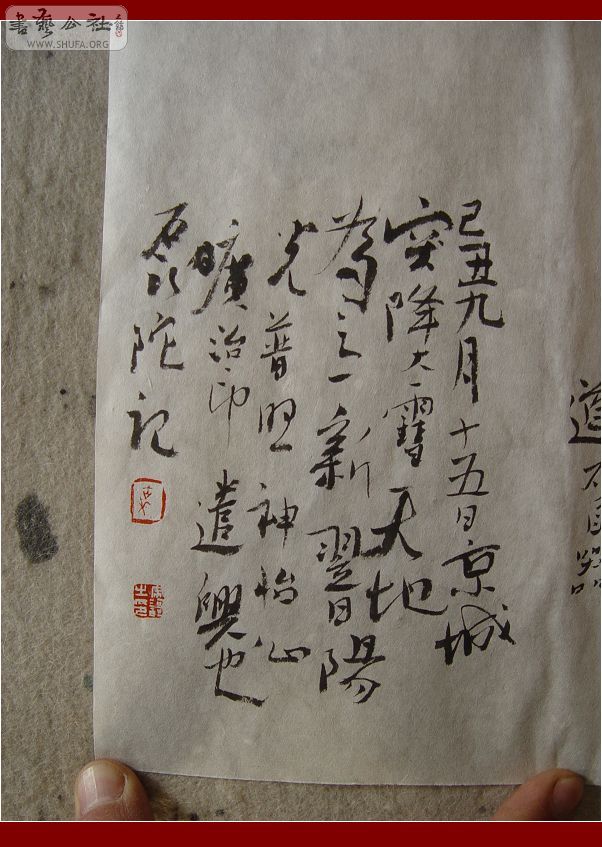 書藝公社
WWW.SHUFA.ORG
己丑九月十五日京城
突降大雪天地
為之一新翌日陽
光普照神怡心
曠治印遣興也
磊陀記
道